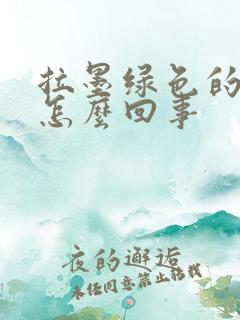 拉墨绿色的
怎麼回事
夜的邂逅
未经同意禁止转载